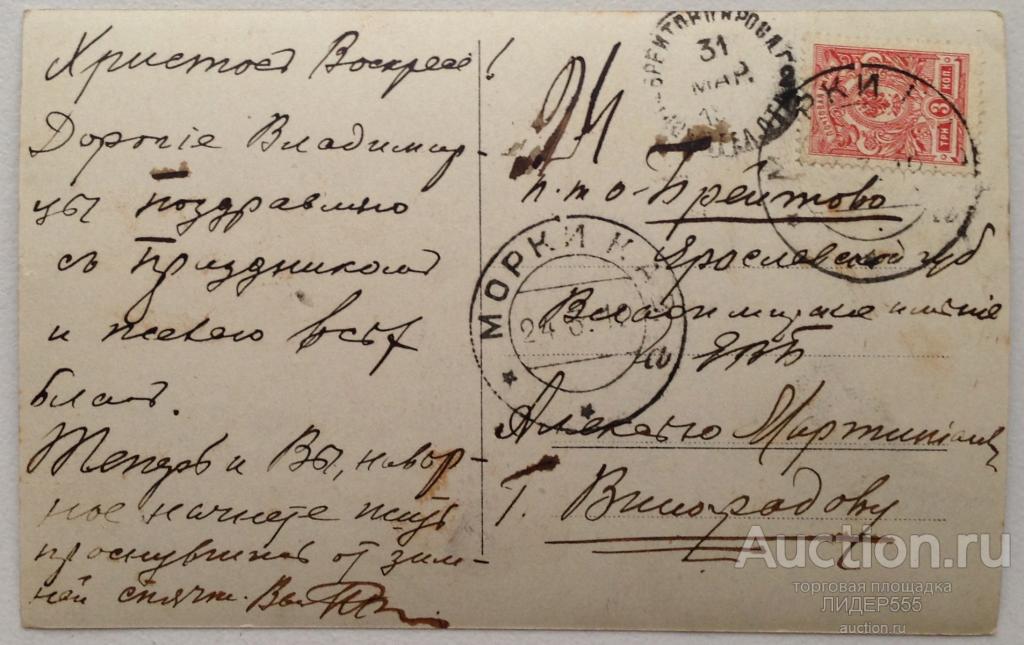 Христосъ Воскресе!
Дорогіе Владимір-
цы поздравляю
съ Праздникомъ
и желаю всѣхъ
благъ.
Теперь и Вы, навѣр-
ное начнете жить
проснувшись от зим-
ней спячк. Ваш
24
п. т. о. Брейтово
Ярославской губ
Владимірское имѣние
ЕВБ
Алексѣю Мартиніанов
Г. Виноградову
31
МАР.
МОРКИ К
24 3
ТРИ 3 КОП.
Auction.ru
торговая площадка
ЛИДЕР555
auction.ru